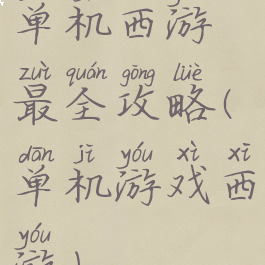 单机西游
zuì quán gōng lüè
最全攻略(
dān jī yóu xì xī
单机游戏西
yóu
游)